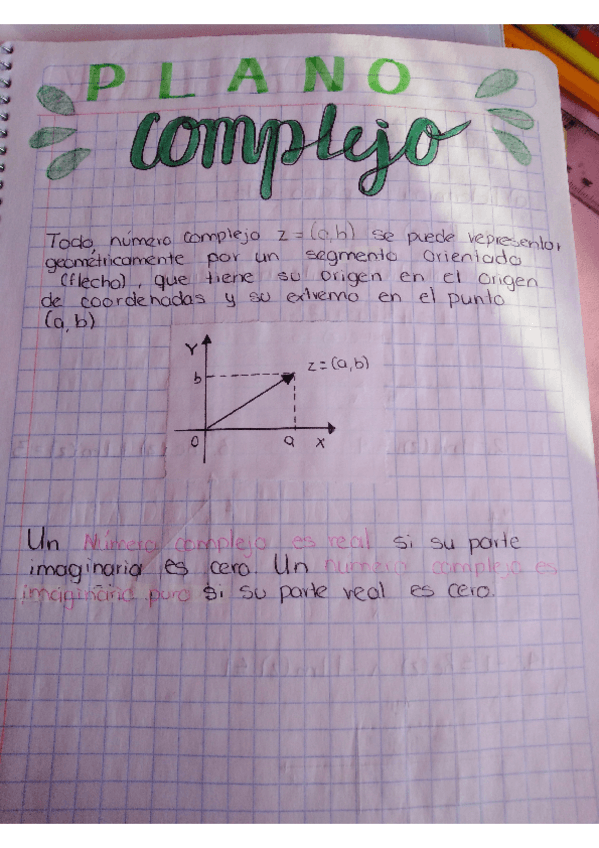 PLANO
complejo
Todo número complejo z = (a,b) se puede representar
geométricamente por un segmento orientado
(flecha), que tiene su origen en el origen
de coordenadas y su extremo en el punto
(a,b)
Y
b
z = (a,b)
0
a
x
Un Número complejo es real si su parte
imaginaria es cero. Un numero complejo es
imaginario puro si su parte real es cero.